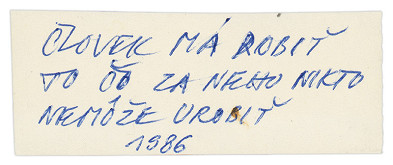 ČLOVEK MÁ ROBIŤ
TO ČO ZA NEHO NIKTO
NEMÔŽE UROBIŤ
1986